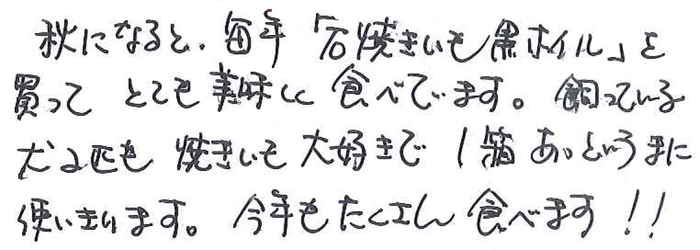 秋になると、毎年「石焼きいも黒ホイル」を
買って とても美味しく食べています。飼っている
犬2匹も 焼きいも大好きで 1箱 あっというまに
使いきります。今年もたくさん食べます!!